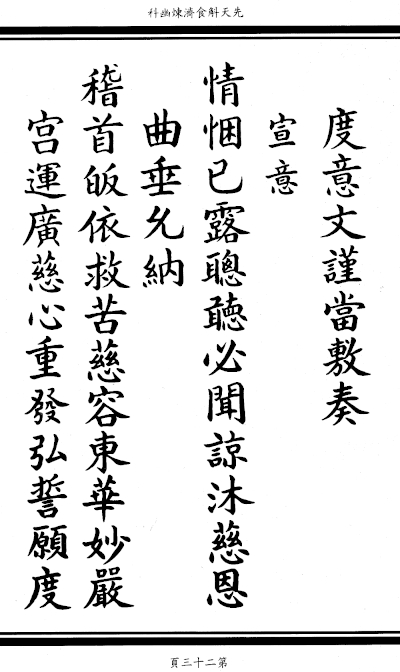 先天斛食濟煉幽科
度意文謹當敷奏
宣意
情悃已露聰聽必聞諒沐慈恩
曲垂允納
稽首皈依救苦慈容東華妙嚴
宮運廣慈心重發弘誓願度
第二十三頁